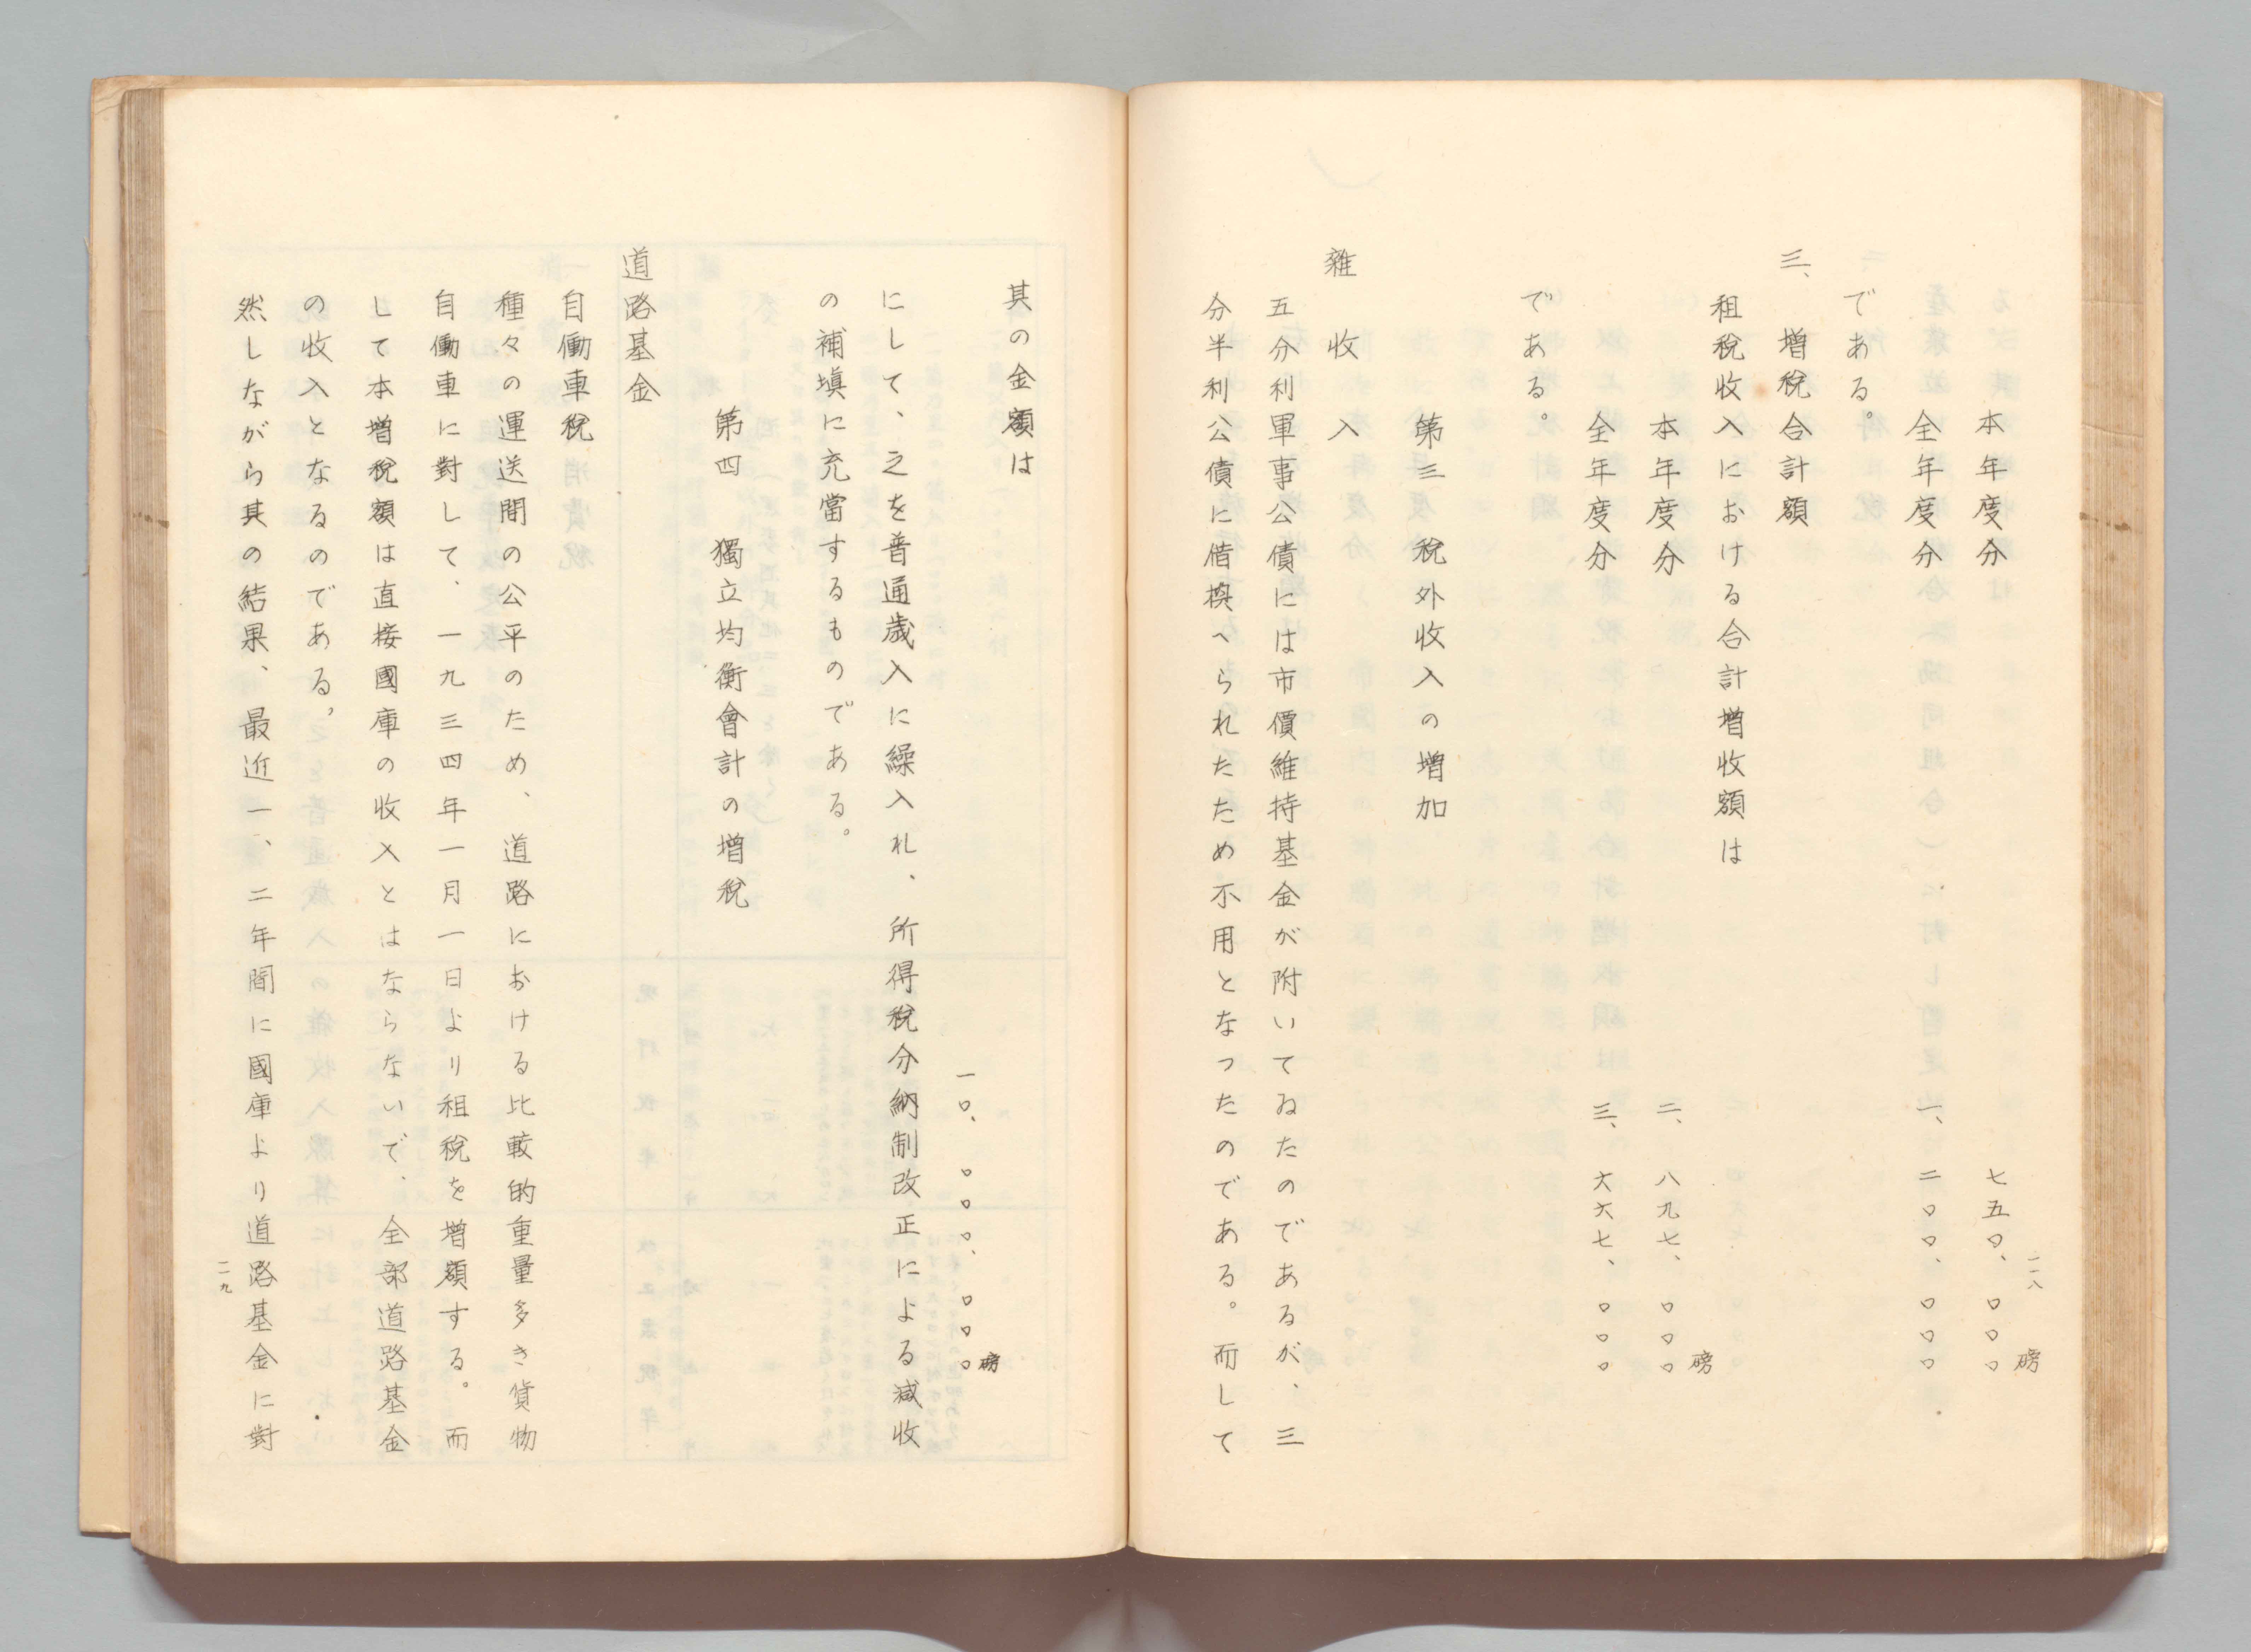 一一八
本年度分 七五〇、〇〇〇磅
全年度分 一、二〇〇、〇〇〇
である。
三、增稅合計額
租稅收入における合計增收額は
本年度分 二、八九七、〇〇〇磅
全年度分 三、六六七、〇〇〇
である。
第三 稅外收入の增加
雜收入
五分利軍事公債には市價維持基金が附いてゐたのであるが、三
分半利公債に借換へられたため不用となつたのである。而して
其の金額は
一〇、〇〇〇、〇〇〇磅
にして、之を普通歲入に繰入れ、所得稅分納制改正による減收
の補塡に充當するものである。
第四 獨立均衡會計の增稅
道路基金
自働車稅
種々の運送間の公平のため、道路における比較的重量多き貨物
自働車に對して、一九三四年一月一日より租稅を增額する。而
して本增稅額は直接國庫の收入とはならないで、全部道路基金
の收入となるのである。
然しながら其の結果、最近一、二年間に國庫より道路基金に對
一一九